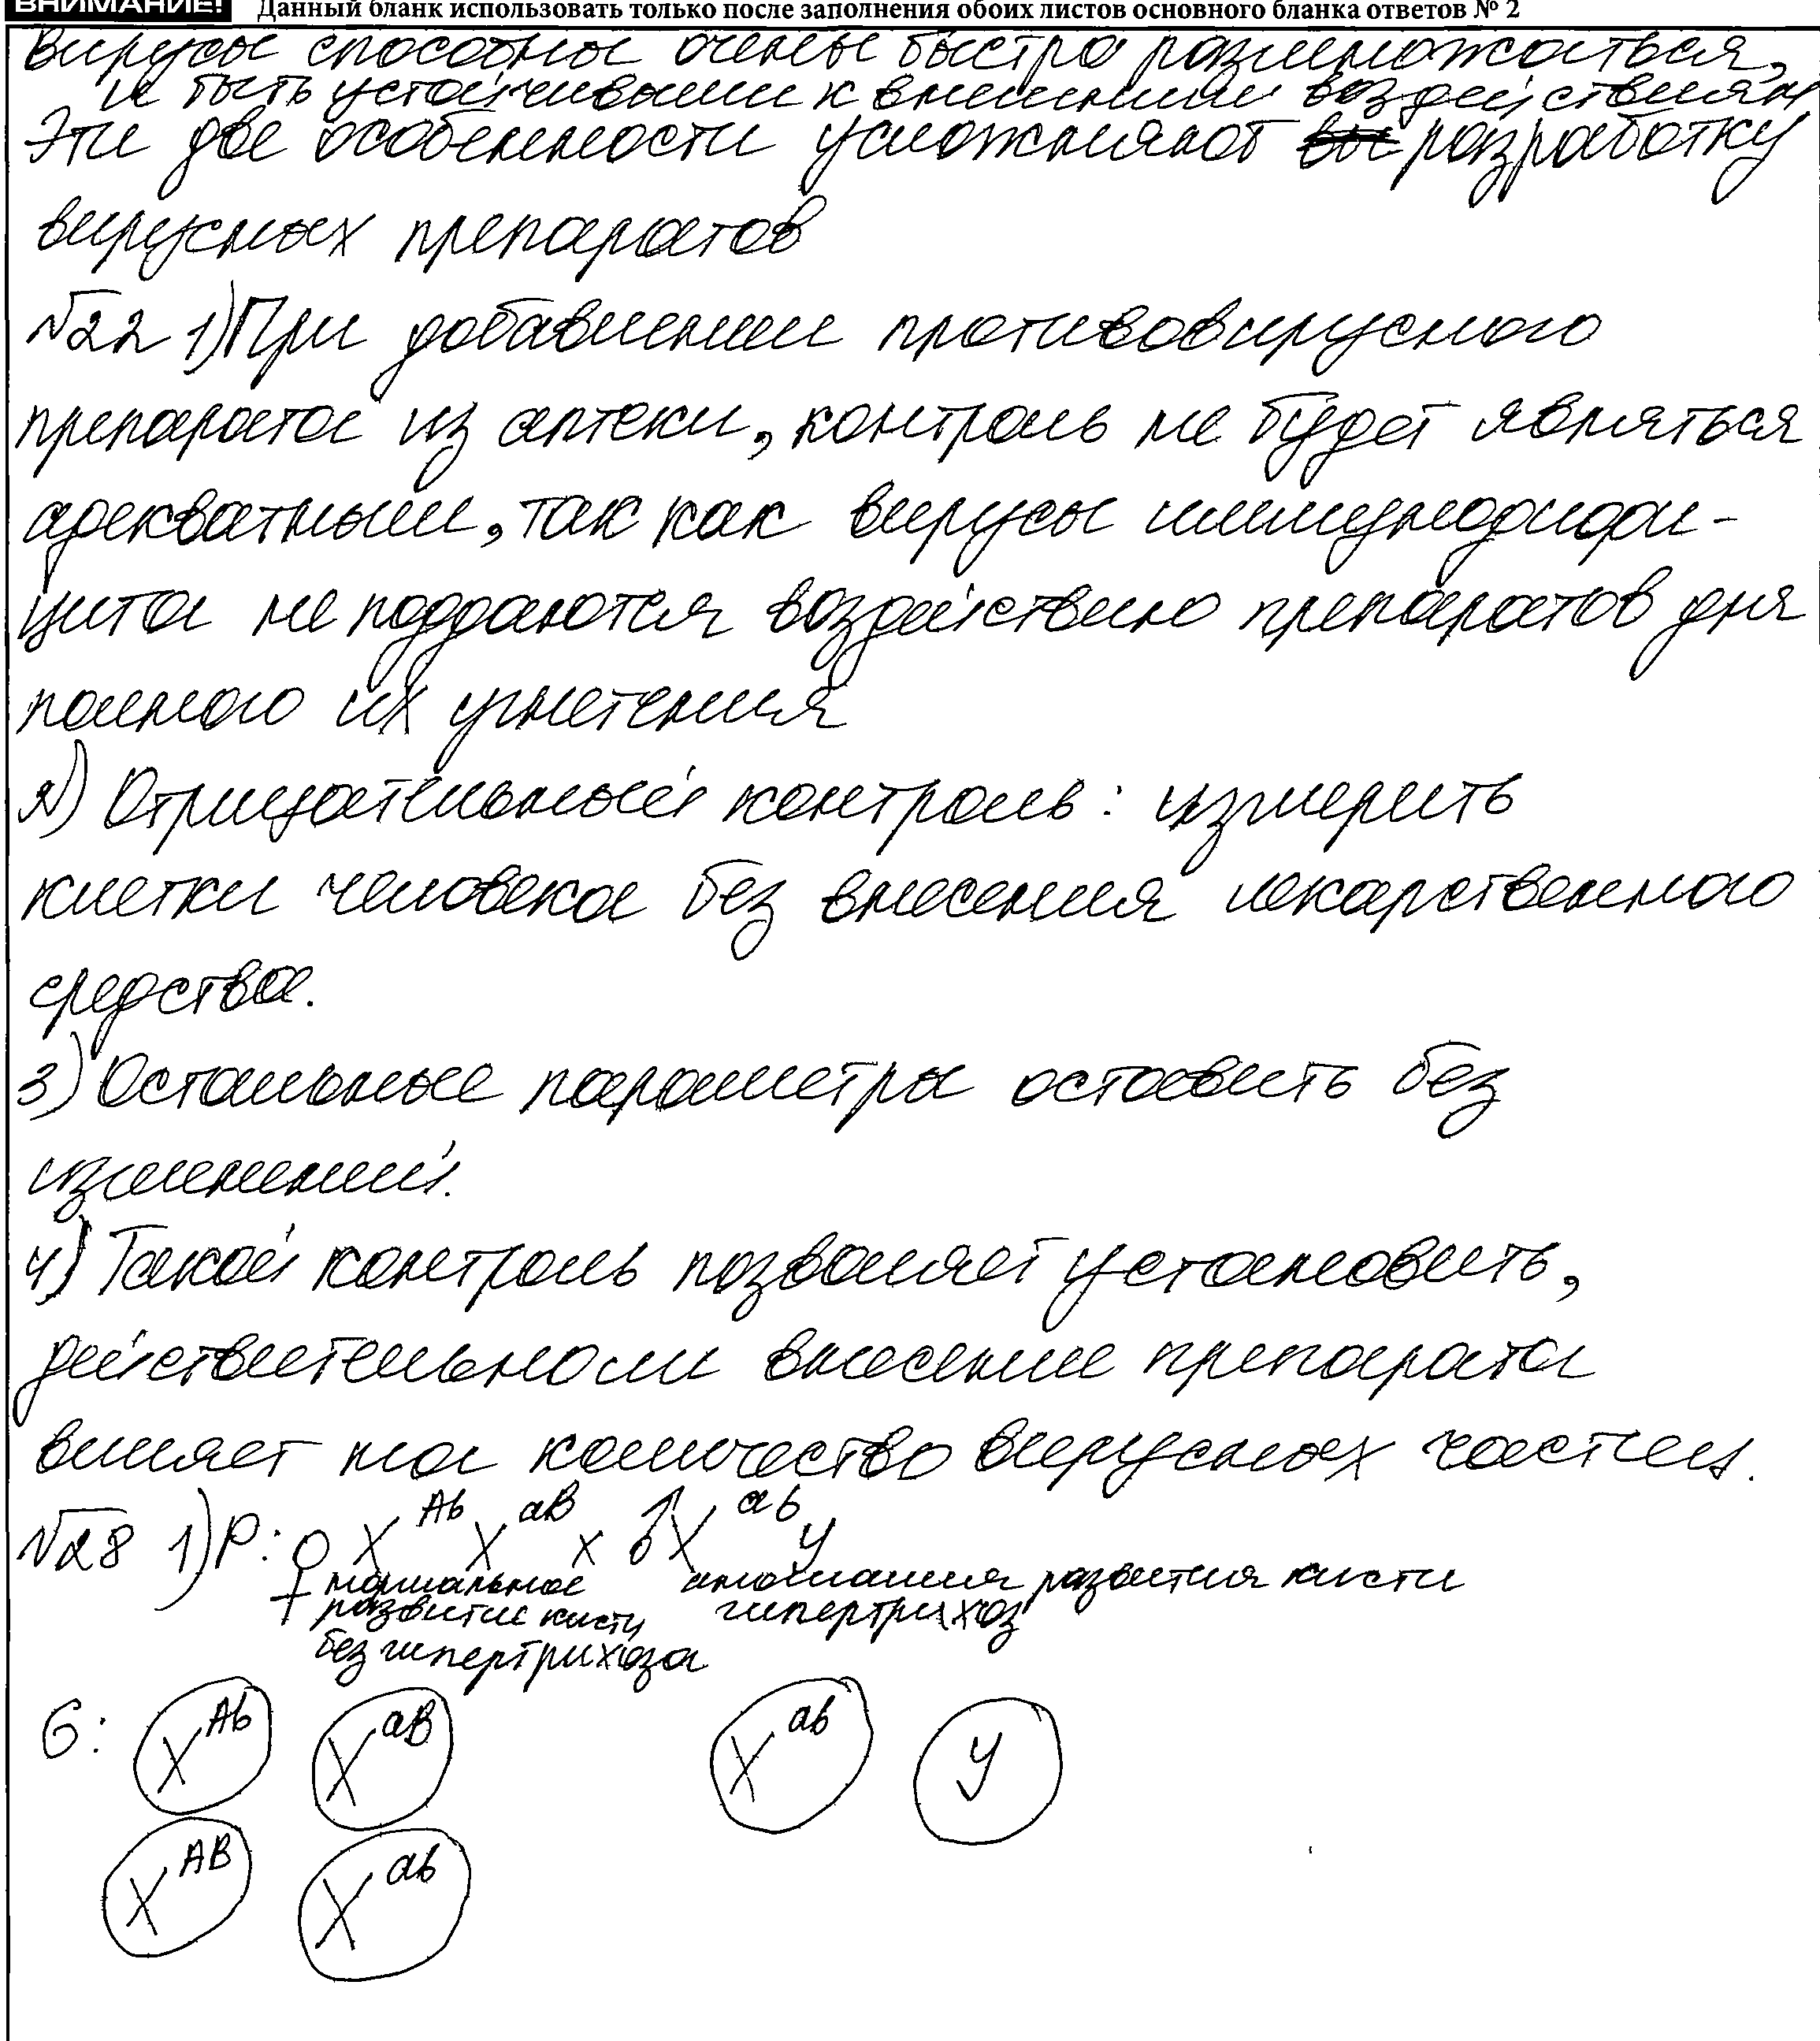 ВНИМАНИЕ! Данный бланк использовать только после заполнения обоих листов основного бланка ответов № 2
Вирусы способны очень быстро размножаться,
и быть устойчивыми к внешним воздействиям
Эти две особенности усложняют разработку
вирусных препаратов
№22 1) При добавлении противовирусного
препарата из аптеки, контроль не будет являться
адекватным, так как вирусы иммунодефи-
цита не поддаются воздействию препаратов для
полного их угнетения
2) Отрицательный контроль: измерить
клетки человека без внесения лекарственного
средства.
3) Остальные параметры оставить без
изменений.
4) Такой контроль позволяет установить,
действительно ли внесение препарата
влияет на количество вирусных частиц.
№28 1) P: ♀ X^Ab X^aB x ♂ X^ab У
нормальное аномалия развития кисти
развитие кисти гипертрихоз
без гипертрихоза
G: X^Ab X^aB X^ab У
X^AB X^ab